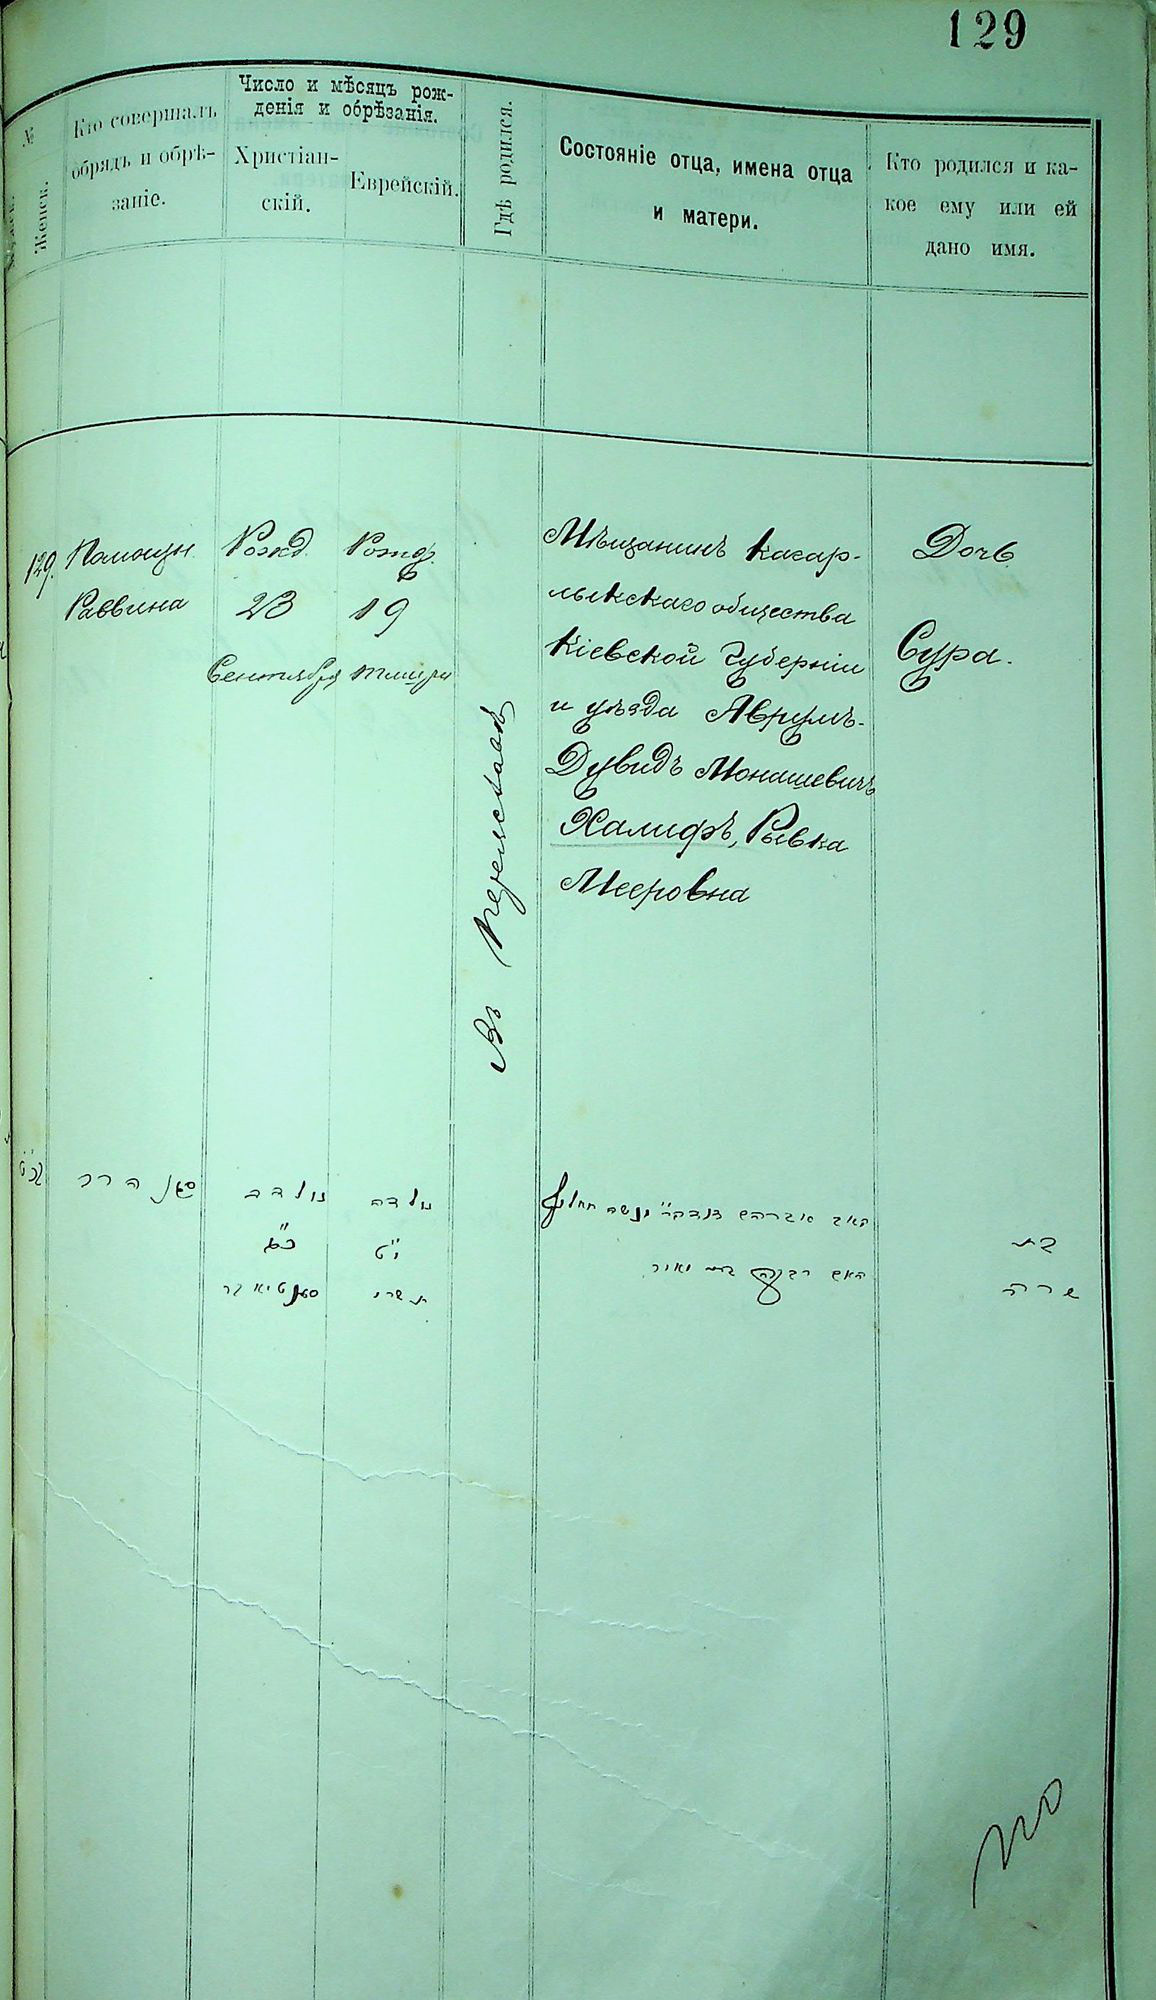 129
№
Женск.
Кто совершалъ
обрядъ и обрѣ-
заніе.
Число и мѣсяцъ рож-
денія и обрѣзанія.
Христіан-
скій.
Еврейскій.
Гдѣ родился.
Состояніе отца, имена отца
и матери.
Кто родился и ка-
кое ему или ей
дано имя.
129.
Помощн.
Раввина
Рожд.
23
Сентября
Рожд.
19
Тишри
Въ Переяславѣ
Мѣщанинъ Кагар-
лыкскаго общества
Кіевской Губерніи
и уѣзда Аврумъ-
Дувидъ Монашевичъ
Халифъ, Рывка
Мееровна
Дочь
Сура.
קכ״ט
נולדה
כ״ג
נולדה
י״ט
תשרי
האב אברהם
האם רבקה בת מאיר
בת
שרה